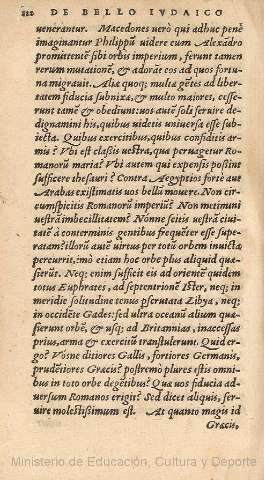 222 DE BELLO IVDAICO
venerantur. Macedones verò qui adhuc penè
imaginantur Philippū videre cum Alexādro
promittentē sibi orbis imperium, ferunt tamen
rerum mutationē, & adorāt eos ad quos fortu-
na migrauit. Aliæ quoq; multæ gētes ad liber-
tatem fiducia subnixæ, & multo maiores, cesse-
runt tamē & obediunt: vos autē soli seruire de-
dignamini his, quibus videtis vniuersa esse sub-
iecta. Quibus exercitibus, quibus confiditis ar-
mis? Vbi est classis vestra, quæ peruagetur Ro-
manorū maria? Vbi autem qui expensis possint
sufficere thesauri? Contra Ægyptios fortè aut
Arabas existimatis vos bellū mouere. Non cir-
cumspicitis Romanorū imperiū? Non metimini
vestrā imbecillitatem? Nonne scitis vestrā ciui-
tatē à conterminis gentibus frequēter esse supe-
ratam? illorū autē virtus per totū orbem inuicta
percurrit, imò etiam hoc orbe plus aliquid quæ-
sierūt. Neq; enim sufficit eis ad orientē quidem
totus Euphrates, ad septentrionē Ister, neq; in
meridie solitudine tenus pscrutata Libya, neq;
in occidēte Gades: sed vltra oceanū alium quæ-
sierunt orbē, & vsq; ad Britannias, inaccessas
prius, arma & exercitū transtulerunt. Quid er-
go? Vosne ditiores Gallis, fortiores Germanis,
prudētiores Græcis? postremò plures estis omni-
bus in toto orbe degētibus? Qua vos fiducia ad-
uersum Romanos erigit? Sed dicet aliquis, ser-
uire molestissimum est. At quanto magis id
Græcis,
Ministerio de Educación, Cultura y Deporte